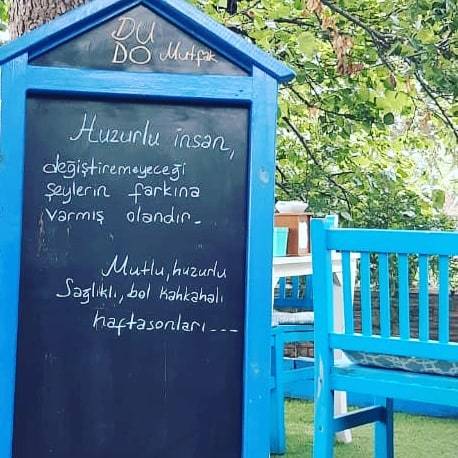 DU
DO Mutfak
Huzurlu insan,
değiştiremeyeceği
şeylerin farkına
varmış olandır.
Mutlu, huzurlu
Sağlıklı, bol kahkahalı
haftasonları...